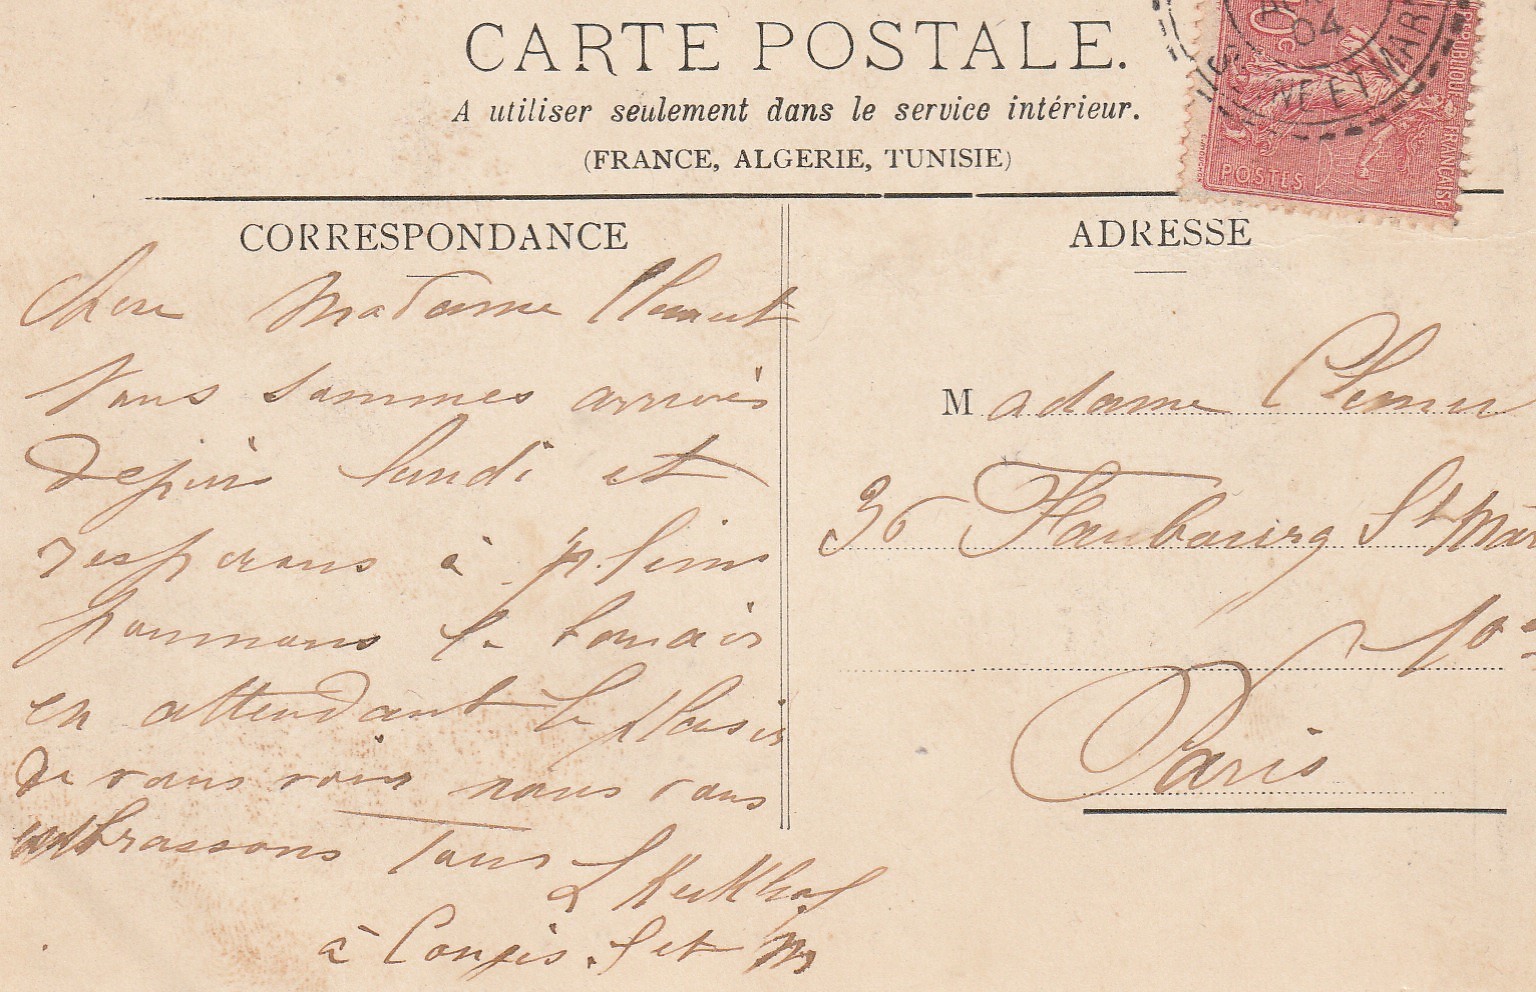 CARTE POSTALE.
A utiliser seulement dans le service intérieur.
(FRANCE, ALGERIE, TUNISIE)
04
NE ET MAR
POSTES
FRANÇAISE
CORRESPONDANCE
Chere Madame Clement
Nous sommes arrivés
depuis lundi et
respirons à pleins
poumons
en attendant le plaisir
de vous voir nous vous
embrassons tous
à Congis. S et M
ADRESSE
Madame Clemen
36 Faubourg St Mar
10e
Paris